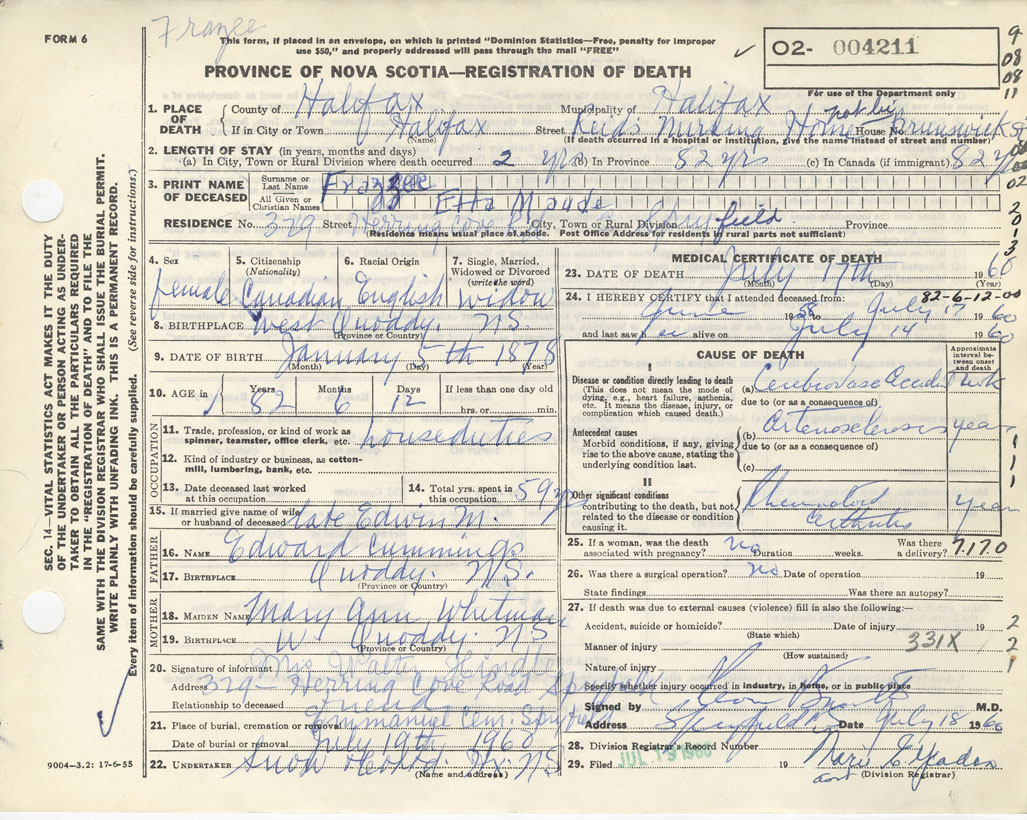 FORM 6
This form, if placed in an envelope, on which is printed "Dominion Statistics—Free, penalty for improper
use $50," and properly addressed will pass through the mail "FREE"
02- 004211
For use of the Department only
PROVINCE OF NOVA SCOTIA—REGISTRATION OF DEATH
1. PLACE OF DEATH County of Halifax Municipality of Halifax
If in City or Town Halifax Street Reid's Nursing Home House No. Brunswick St
(Name) (If death occurred in a hospital or institution, give the name instead of street and number)
2. LENGTH OF STAY (in years, months and days)
(a) In City, Town or Rural Division where death occurred 2 yrs (b) In Province 82 yrs (c) In Canada (if immigrant) 82 yrs
3. PRINT NAME OF DECEASED Surname or Last Name
All Given or Christian Names Etta Maude
RESIDENCE No. 379 Street Herring Cove Rd City, Town or Rural Division Spryfield Province
(Residence means usual place of abode. Post Office Address for residents in rural parts not sufficient)
4. Sex 5. Citizenship (Nationality) 6. Racial Origin 7. Single, Married, Widowed or Divorced (write the word)
female Canadian English widow
8. BIRTHPLACE West Quoddy. N.S.
(Province or Country)
9. DATE OF BIRTH January 5th 1878
(Month) (Day) (Year)
10. AGE in Years Months Days If less than one day old
82 6 12 hrs. or min.
OCCUPATION
11. Trade, profession, or kind of work as spinner, teamster, office clerk, etc. houseduties
12. Kind of industry or business, as cotton-mill, lumbering, bank, etc.
13. Date deceased last worked at this occupation 14. Total yrs. spent in this occupation 59 yrs
15. If married give name of wife or husband of deceased late Edwin M.
FATHER
16. NAME Edward Cummings
17. BIRTHPLACE Quoddy. N.S.
(Province or Country)
MOTHER
18. MAIDEN NAME Mary Ann Whitman
19. BIRTHPLACE W Quoddy. N.S
(Province or Country)
20. Signature of informant Mrs Walter
Address 379 - Herring Cove Road Spryfield
Relationship to deceased Friend
21. Place of burial, cremation or removal Emmanuel Cem. Spryfield
Date of burial or removal July 19th 1960
22. UNDERTAKER Snow & Co Ltd. Hx. N.S
(Name and address)
MEDICAL CERTIFICATE OF DEATH
23. DATE OF DEATH July 17th 1960
(Month) (Day)
82-6-12-00
24. I HEREBY CERTIFY that I attended deceased from:
June 1958 to July 17 1960
and last saw her alive on July 14 1960
CAUSE OF DEATH
Approximate interval between onset and death
I
Disease or condition directly leading to death (a)
(This does not mean the mode of dying, e.g., heart failure, asthenia, etc. It means the disease, injury, or complication which caused death.)
due to (or as a consequence of)
Antecedent causes (b) Arteriosclerosis years
Morbid conditions, if any, giving rise to the above cause, stating the underlying condition last.
due to (or as a consequence of)
(c)
II
Other significant conditions contributing to the death, but not related to the disease or condition causing it.
Rheumatoid Arthritis years
25. If a woman, was the death associated with pregnancy? No Duration weeks. Was there a delivery? 7.17.0
26. Was there a surgical operation? No Date of operation 19
State findings Was there an autopsy?
27. If death was due to external causes (violence) fill in also the following:—
Accident, suicide or homicide? Date of injury 19
(State which)
Manner of injury 331X
(How sustained)
Nature of injury
Specify whether injury occurred in industry, in home, or in public place
Signed by M.D.
Address Spryfield Date July 18 1960
28. Division Registrar's Record Number
29. Filed JUL 19 1960 19
(Division Registrar)
SEC. 14—VITAL STATISTICS ACT MAKES IT THE DUTY
OF THE UNDERTAKER OR PERSON ACTING AS UNDER-
TAKER TO OBTAIN ALL THE PARTICULARS REQUIRED
IN THE "REGISTRATION OF DEATH" AND TO FILE THE
SAME WITH THE DIVISION REGISTRAR WHO SHALL ISSUE THE BURIAL PERMIT.
WRITE PLAINLY WITH UNFADING INK. THIS IS A PERMANENT RECORD.
Every item of information should be carefully supplied. (See reverse side for instructions.)
9004-3.2: 17-6-55